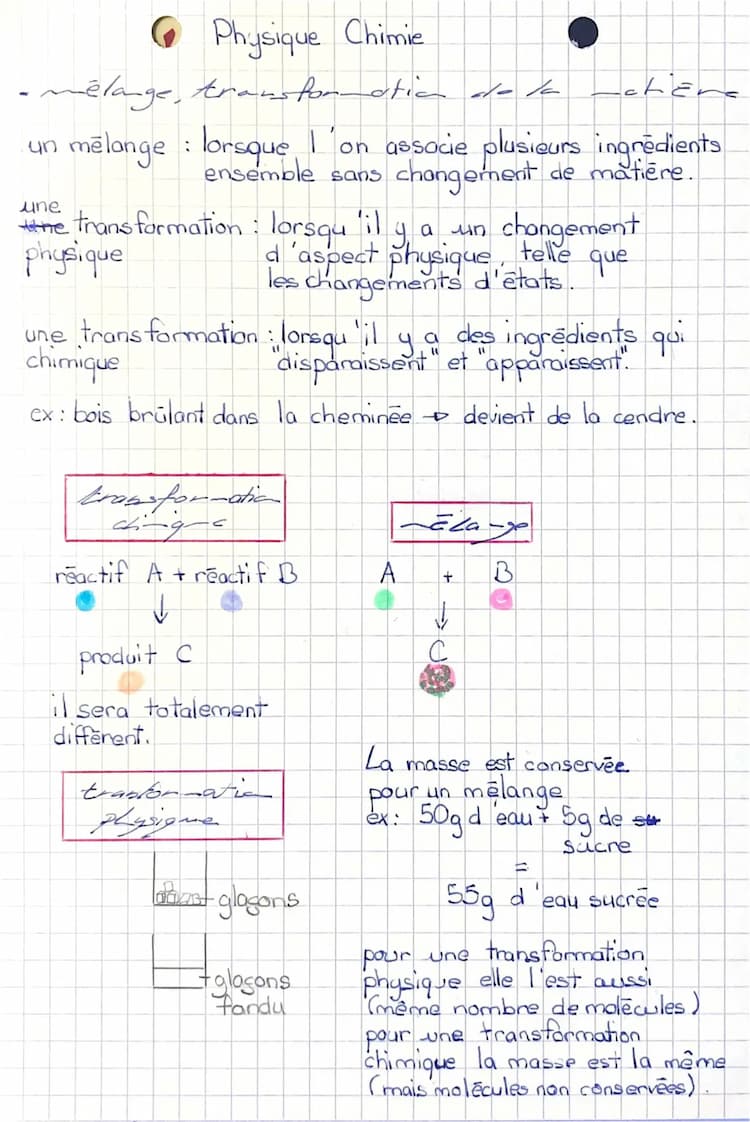 Physique Chimie
- mélange, transformation de la matière
un mélange : lorsque l'on associe plusieurs ingrédients
ensemble sans changement de matière.
une
transformation : lorsqu'il y a un changement
physique d'aspect physique, telle que
les changements d'états.
une transformation : lorsqu'il y a des ingrédients qui
chimique "disparaissent" et "apparaissent".
ex : bois brûlant dans la cheminée → devient de la cendre.
transformation
chimique
mélange
réactif A + réactif B
↓
produit C
il sera totalement
différent.
A + B
↓
C
transformation
physique
glaçons
glaçons
fondu
La masse est conservée
pour un mélange
ex : 50g d'eau + 5g de
sucre
=
55g d'eau sucrée
pour une transformation
physique elle l'est aussi
(même nombre de molécules)
pour une transformation
chimique la masse est la même
(mais molécules non conservées).